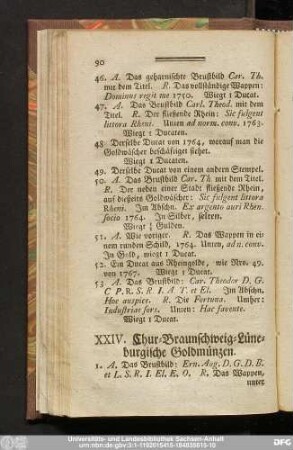 90
46. A. Das geharnischte Brustbild Car. Th.
mit dem Titel. R. Das vollständige Wappen:
Dominus regit me 1750. Wiegt 1 Ducat.
47. A. Das Brustbild Carl. Theod. mit dem
Titel. R. Der fließende Rhein: Sic fulgent
littora Rheni. Unten ad norm. conv. 1763.
Wiegt 1 Ducaten.
48. Derselbe Ducat von 1764, worauf man die
Goldwäscher beschäftiget siehet.
Wiegt 1 Ducaten.
49. Derselbe Ducat von einem andern Stempel.
50. A. Das Brustbild Car. Th. mit dem Titel.
R. Der neben einer Stadt fließende Rhein,
auf diesseits Goldwäscher: Sic fulgent littora
Rheni. Im Abschn. Ex argento auri Rhen.
socio 1764. In Silber, selten.
Wiegt Gulden.
51. A. Wie voriger. R. Das Wappen in ei-
nem runden Schild, 1764. Unten, ad n. conv.
In Gold, wiegt 1 Ducat.
52. Ein Ducat aus Rheingolde, wie Nro. 49.
von 1767. Wiegt 1 Ducat.
53. A. Das Brustbild: Car. Theodor D. G.
C. P. R. S. R. I. A. T. et El. Im Abschn.
Hac auspice. R. Die Fortuna. Umher:
Industriae fors. Unten: Hac favente.
Wiegt 1 Ducat.
XXIV. Chur-Braunschweig-Lüne-
burgische Goldmünzen.
1. A. Das Brustbild: Ern. Aug. D. G. D. B.
et L. S. R. I. El. E. O. R. Das Wappen,
unten
Universitäts- und Landesbibliothek Sachsen-Anhalt
urn:nbn:de:gbv:3:1-1192015415-184035813-10